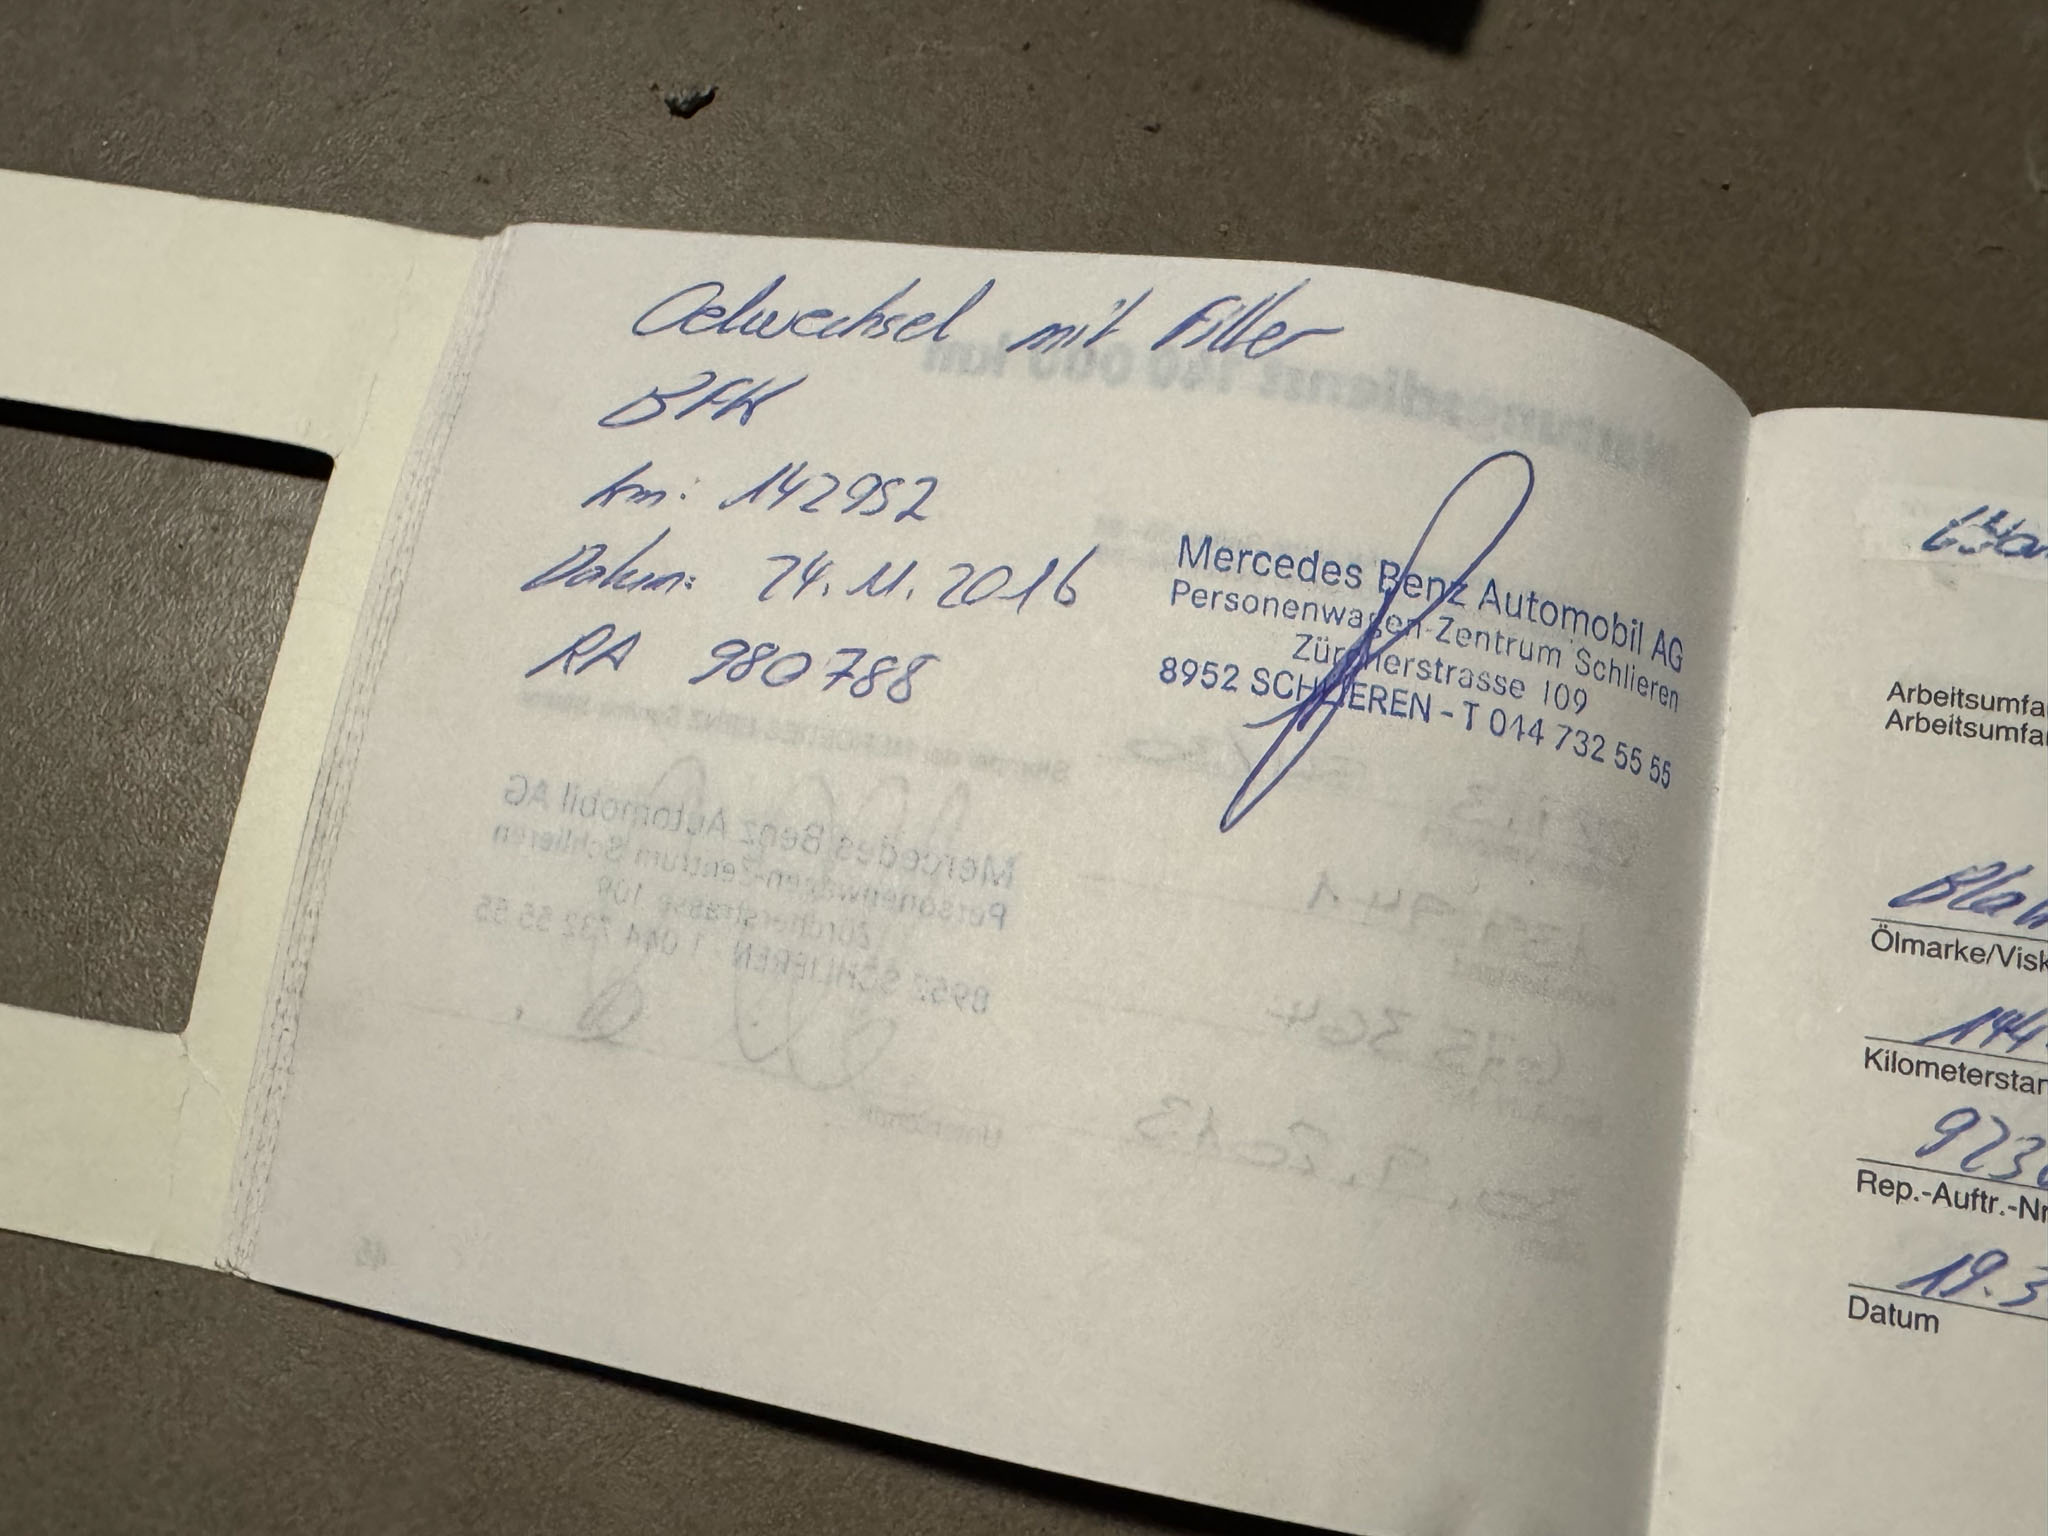 Oelwechsel mit Filter
BFW
km: 142952
Datum: 24.11.2016
RA 980788
Mercedes Benz Automobil AG
Personenwagen-Zentrum Schlieren
Zürcherstrasse 109
8952 SCHLIEREN - T 044 732 55 55
Arbeitsumfa
Arbeitsumfa
Ölmarke/Visk
144
Kilometerstan
923
Rep.-Auftr.-Nr
19.3
Datum